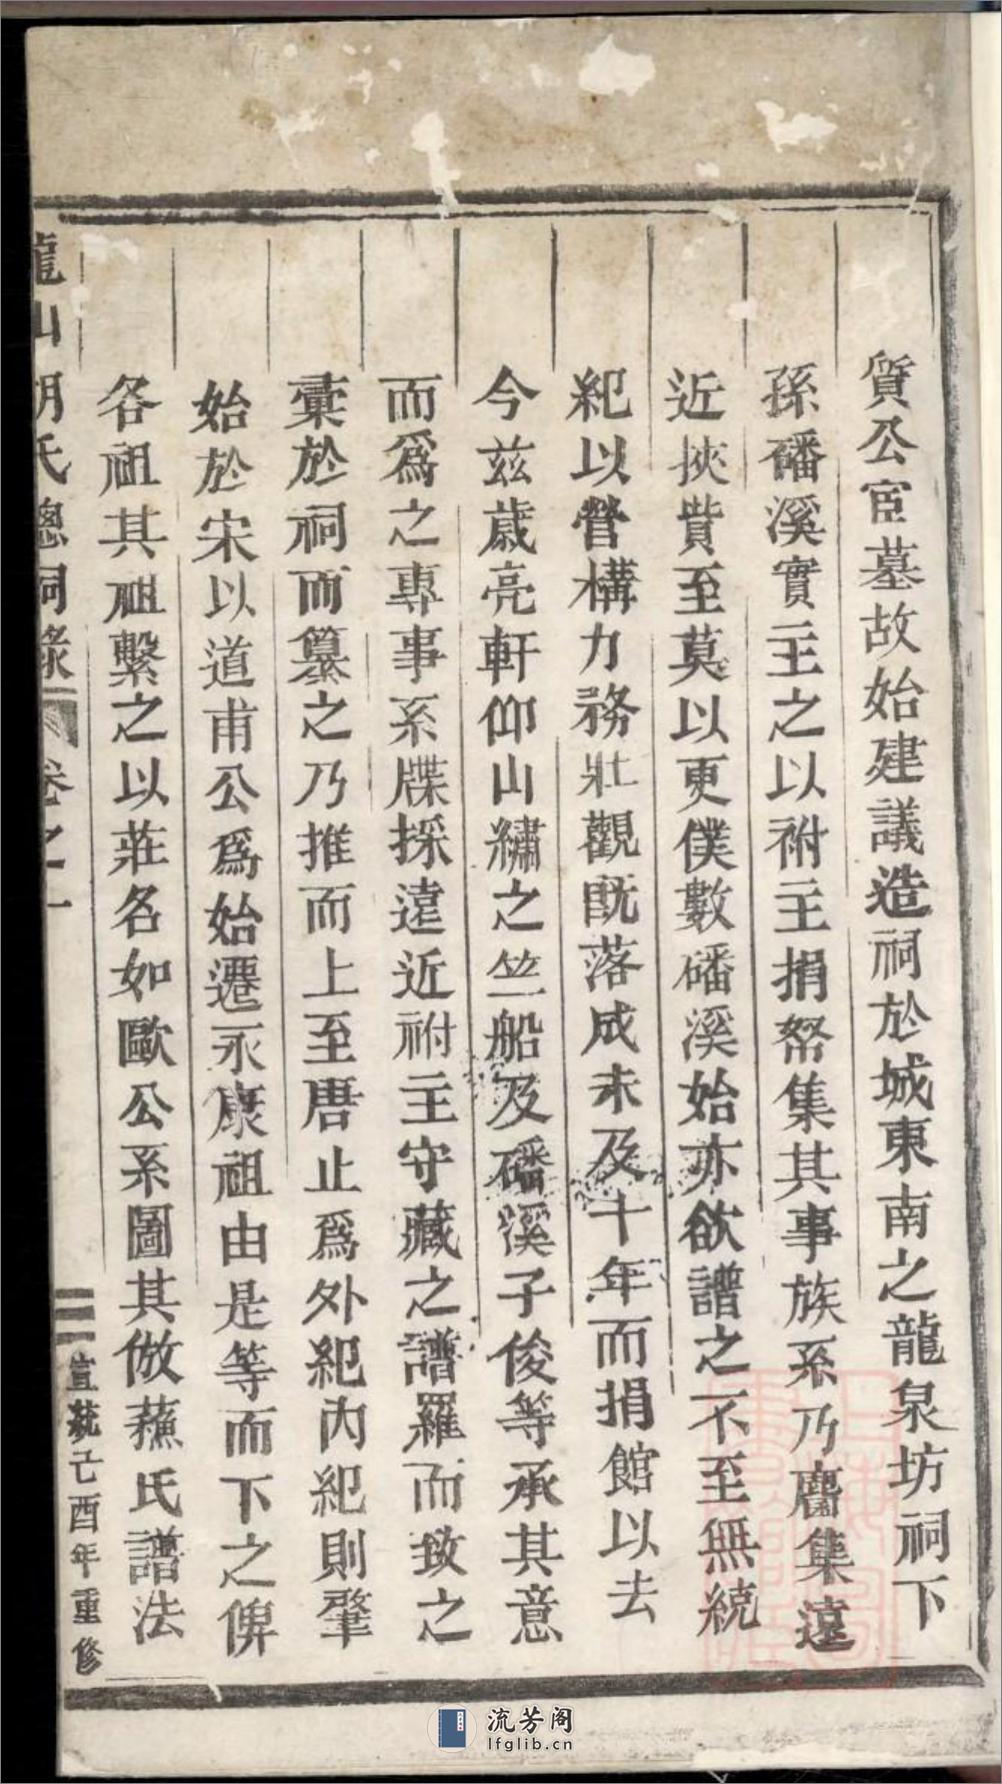 質公宦墓故始建議造祠於城東南之龍泉坊祠下
孫磻溪實主之以祔主捐帑集其事族系乃麕集遠
近挾貲至莫以更僕數磻溪始亦欲譜之不至無統
紀以營構力務壯觀既落成未及十年而捐館以去
今茲歲亮軒仰山繡之竺船及磻溪子俊等承其意
而爲之專事系牒採遠近祔主守藏之譜羅而致之
彙於祠而纂之乃推而上至唐止爲外紀內紀則肇
始於宋以道甫公爲始遷永康祖由是等而下之俾
各祖其祖繫之以莊名如歐公系圖其倣蘇氏譜法
龍山胡氏總祠錄 卷之一 二 宣統己酉年重修
流芳阁
lfglib.cn